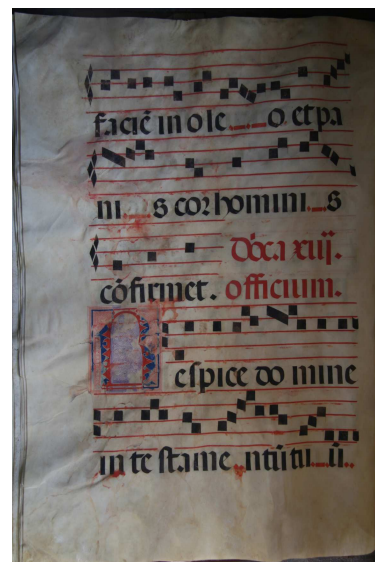 faciē in ole o et pa
ni s cor homini s
Dōca xiij.
cōfirmet. officium.
Respice do mine
in te stame ntū tu ū.